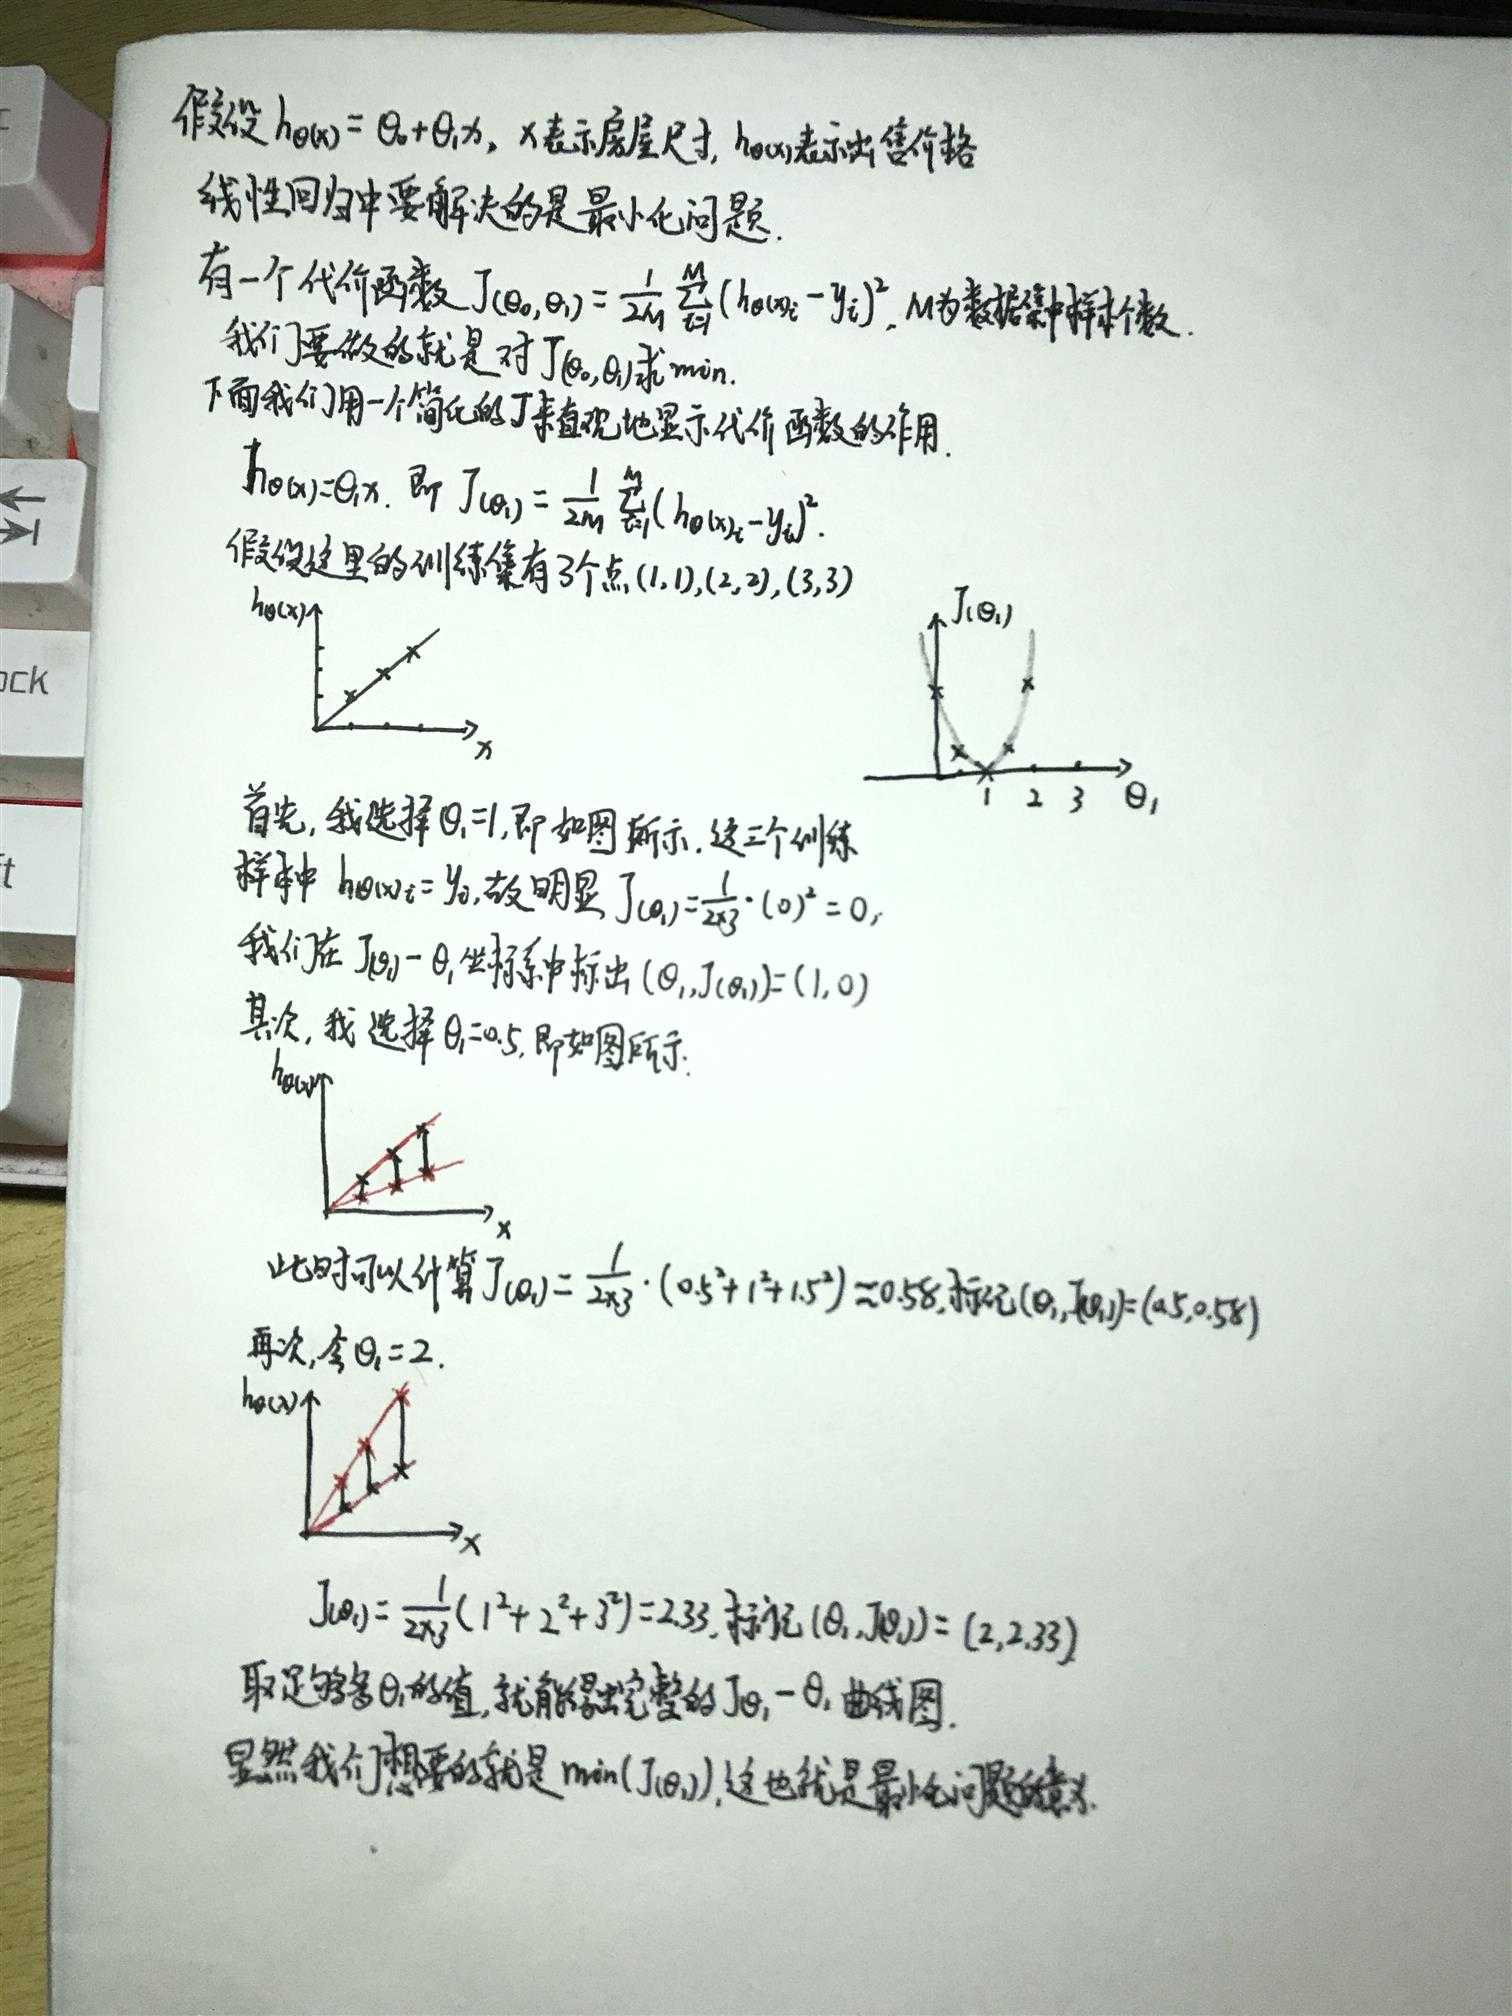 假设 hθ(x) = θ₀+θ₁x, x表示房屋尺寸, hθ(x)表示出售价格
线性回归中要解决的是最小化问题.
有一个代价函数 J(θ₀,θ₁) = 1/2M ∑_{i=1}^{M} (hθ(x)i − yi)², M为数据集中样本个数.
我们要做的就是对 J(θ₀,θ₁)求min.
下面我们用一个简化的J来直观地显示代价函数的作用.
hθ(x)=θ₁x. 即 J(θ₁) = 1/2M ∑_{i=1}^{M} (hθ(x)i − yi)².
假设这里的训练集有3个点(1,1),(2,2),(3,3)
hθ(x)
x
J(θ₁)
1 2 3 θ₁
首先,我选择θ₁=1,即如图所示.这三个训练
样本中 hθ(x)i = yi,故明显 J(θ₁)=1/2×3·(0)²=0,
我们在 J(θ₁) − θ₁ 坐标系中标出 (θ₁,J(θ₁))=(1,0)
其次,我选择θ₁=0.5,即如图所示.
hθ(x)
x
此时可以计算 J(θ₁) = 1/2×3·(0.5²+1²+1.5²)≈0.58,标记(θ₁,J(θ₁))=(0.5,0.58)
再次,令θ₁=2.
hθ(x)
x
J(θ₁)= 1/2×3(1²+2²+3²)=2.33,标记(θ₁,J(θ₁))=(2,2.33)
取足够多θ₁的值,就能得出完整的Jθ₁−θ₁曲线图.
显然我们想要的就是min(J(θ₁)),这也就是最小化问题的意义.
ck
t